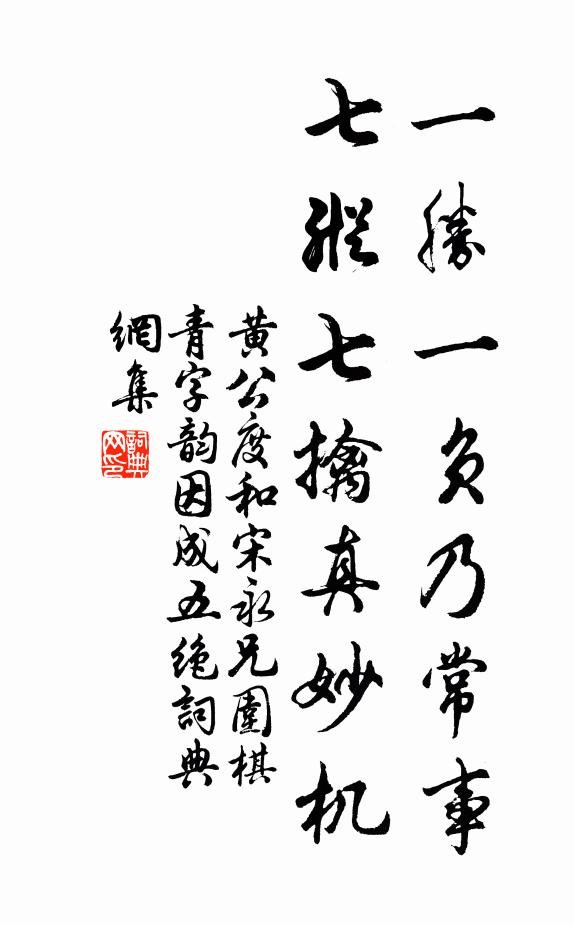 一勝一負乃常事
七縱七擒真妙机
黄公度和宋永兄圍棋
青字韵因成五绝詞典
網集
詞典网印